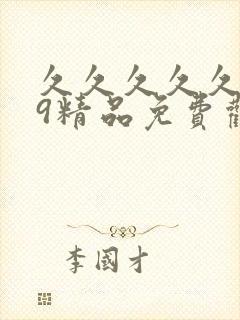 久久久久久
9精品免費
李國才